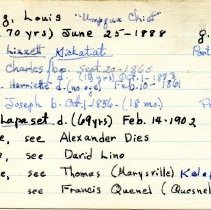 g, Louis "Umpqua Chief"
70 yrs) June 25-1888 g.
Lizzett Kiskatat
Charles b. Sept. 20-1865
d. (19 yrs) Oct. 1-1873
Harriette d. (no age) Feb. 10-1861
Joseph b. Oct. 1856- (18 mo)
Lapaset d. (69yrs) Feb. 14-1902
e, see Alexander Dies
e, see David Lino
e, see Thomas (Marysville)
see Francis Quenel (Quesnel